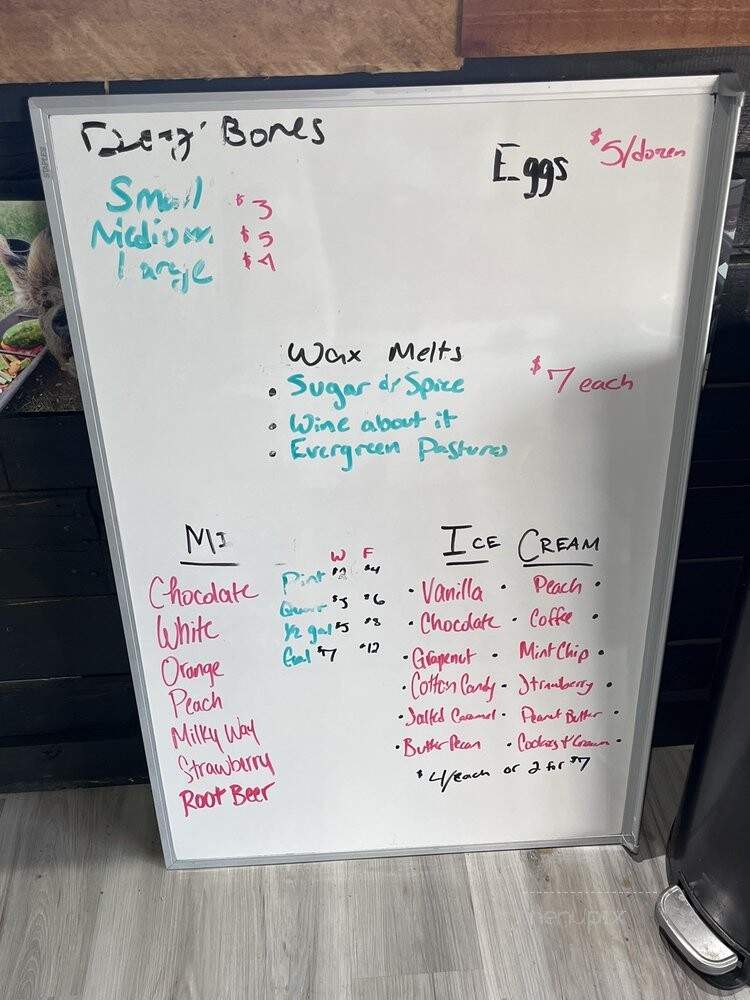 Bones
Eggs $5/dozen
Small $3
Medium $5
Large
Wax Melts
$7 each
• Sugar & Spice
• Wine about it
• Evergreen Pastures
Chocolate
White
Orange
Peach
Milky Way
Strawberry
Root Beer
W F
Pint $2 $4
$6
1/2 gal $5 $8
Gal $7 $12
ICE CREAM
• Vanilla • Peach •
• Chocolate • Coffee •
• Grapenut • Mint Chip •
• Cotton Candy • Strawberry •
• Salted Caramel • Peanut Butter •
• Butter Pecan • Cookies & Cream •
$4/each or 2 for $7
STAPLES
menupix